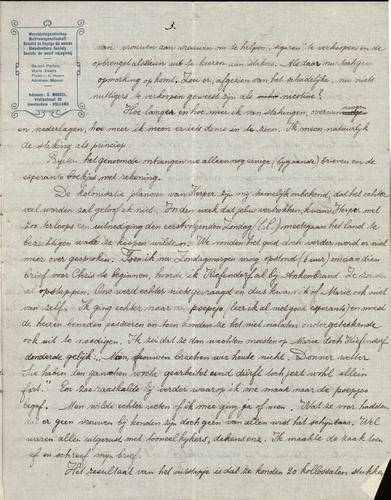 Wereldreisgenootschap
Weltreisegesellschaft
Société de voyage du monde
Globetrotters Society
Societo de mond vojagantoj
Adresse: S. MOSSEL
Amsterdam - HOLLAND
3.
van vrouwen aan vrouwen om de helpen, sigaren te verkoopen en de
opbrengst alsteun uit te keeren aan stakers. Als daar nu toch geen
opmerking op komt. Zou er, afgezien van het schadelijke, nu niets
nuttigers te verkoopen geweest zijn als nicotine?
Hoe langer en hoe meer ik van stakingen, overwinningen
en nederlagen, hoe meer ik meen er iets doms in te zien. Ik meen natuurlijk
de staking als principe.
Bijten het genoemde ontvangen we alleen nog eenige (bijgaande) brieven en de
esperanto boekjes met rekening.
De kolonisatie plannen van Herper zijn mij tamelijk onbekend, dat het echter
veel worden zal geloof ik niet. In den week dat jelui vertrokken, kwam Herper met
zoo terloops een uitnoodiging den eerstvolgenden Zondag (1.P.) mee te gaan het land te
bezichtigen wat ze koopen wilden. We vonden het goed doch verder werd er niet
meer over gesproken. Toen ik nu Zondagmorgen vroeg opstond (6 uur) om aan dien
brief voor Chris te beginnen, hoorde ik Tiefenderf al bij Ankenbrand. Ze konden
al opstappen. Ons werd echter niets gevraagd en dus kwam ik of Marie ook niet
van zelf. Ik ging echter naar de poepejo (leer ik al niet goed esperanto) en moest
de heeren beneden passeren en toen konden ze het niet nalaten onder gebeekende
ook uit te noodigen. Ik zei dat ze dan wachten moesten op Marie doch Tiefenderf
donderde gelijk: „Nein, frouwen brachen wir heute nicht. Donner wetter
Sie haben den ganschen woche gearbeitet und dürft doch jetzt wohl allein
fort." En zoo raaskalde hij verder waarop ik me maar naar de poepejo
begaf. Men wilde echter weten of ik mee ging ja of neen. Wat ze voor hadden
dat er geen vrouwen bij konden zijn doch geen van allen wist het schijnbaar. Wel
waren allen uitgerust met tooneelkijkers, dekens enz. Ik maakte de zaak toen
af en schreef mijn brief.
Het resultaat van het uitstapje is dat ze konden 20 kollossalen stukken